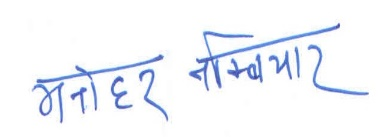 मनोहर नम्बियार